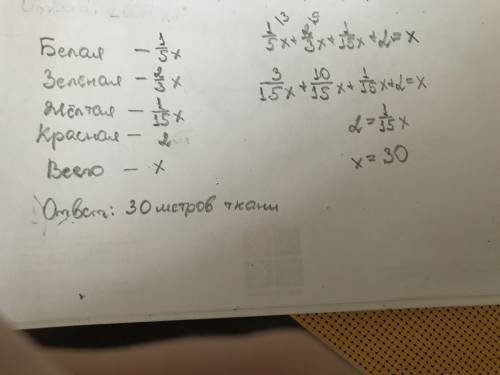 Белая – 1/5x
Зелёная – 2/3x
Жёлтая – 1/15x
Красная – 2
Всего – x
1/5x + 2/3x + 1/15x + 2 = x
3/15x + 10/15x + 1/15x + 2 = x
2 = 1/15x
x = 30
Ответ: 30 метров ткани